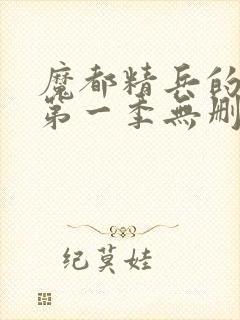 魔都精兵的
第一季無删
纪莫娃